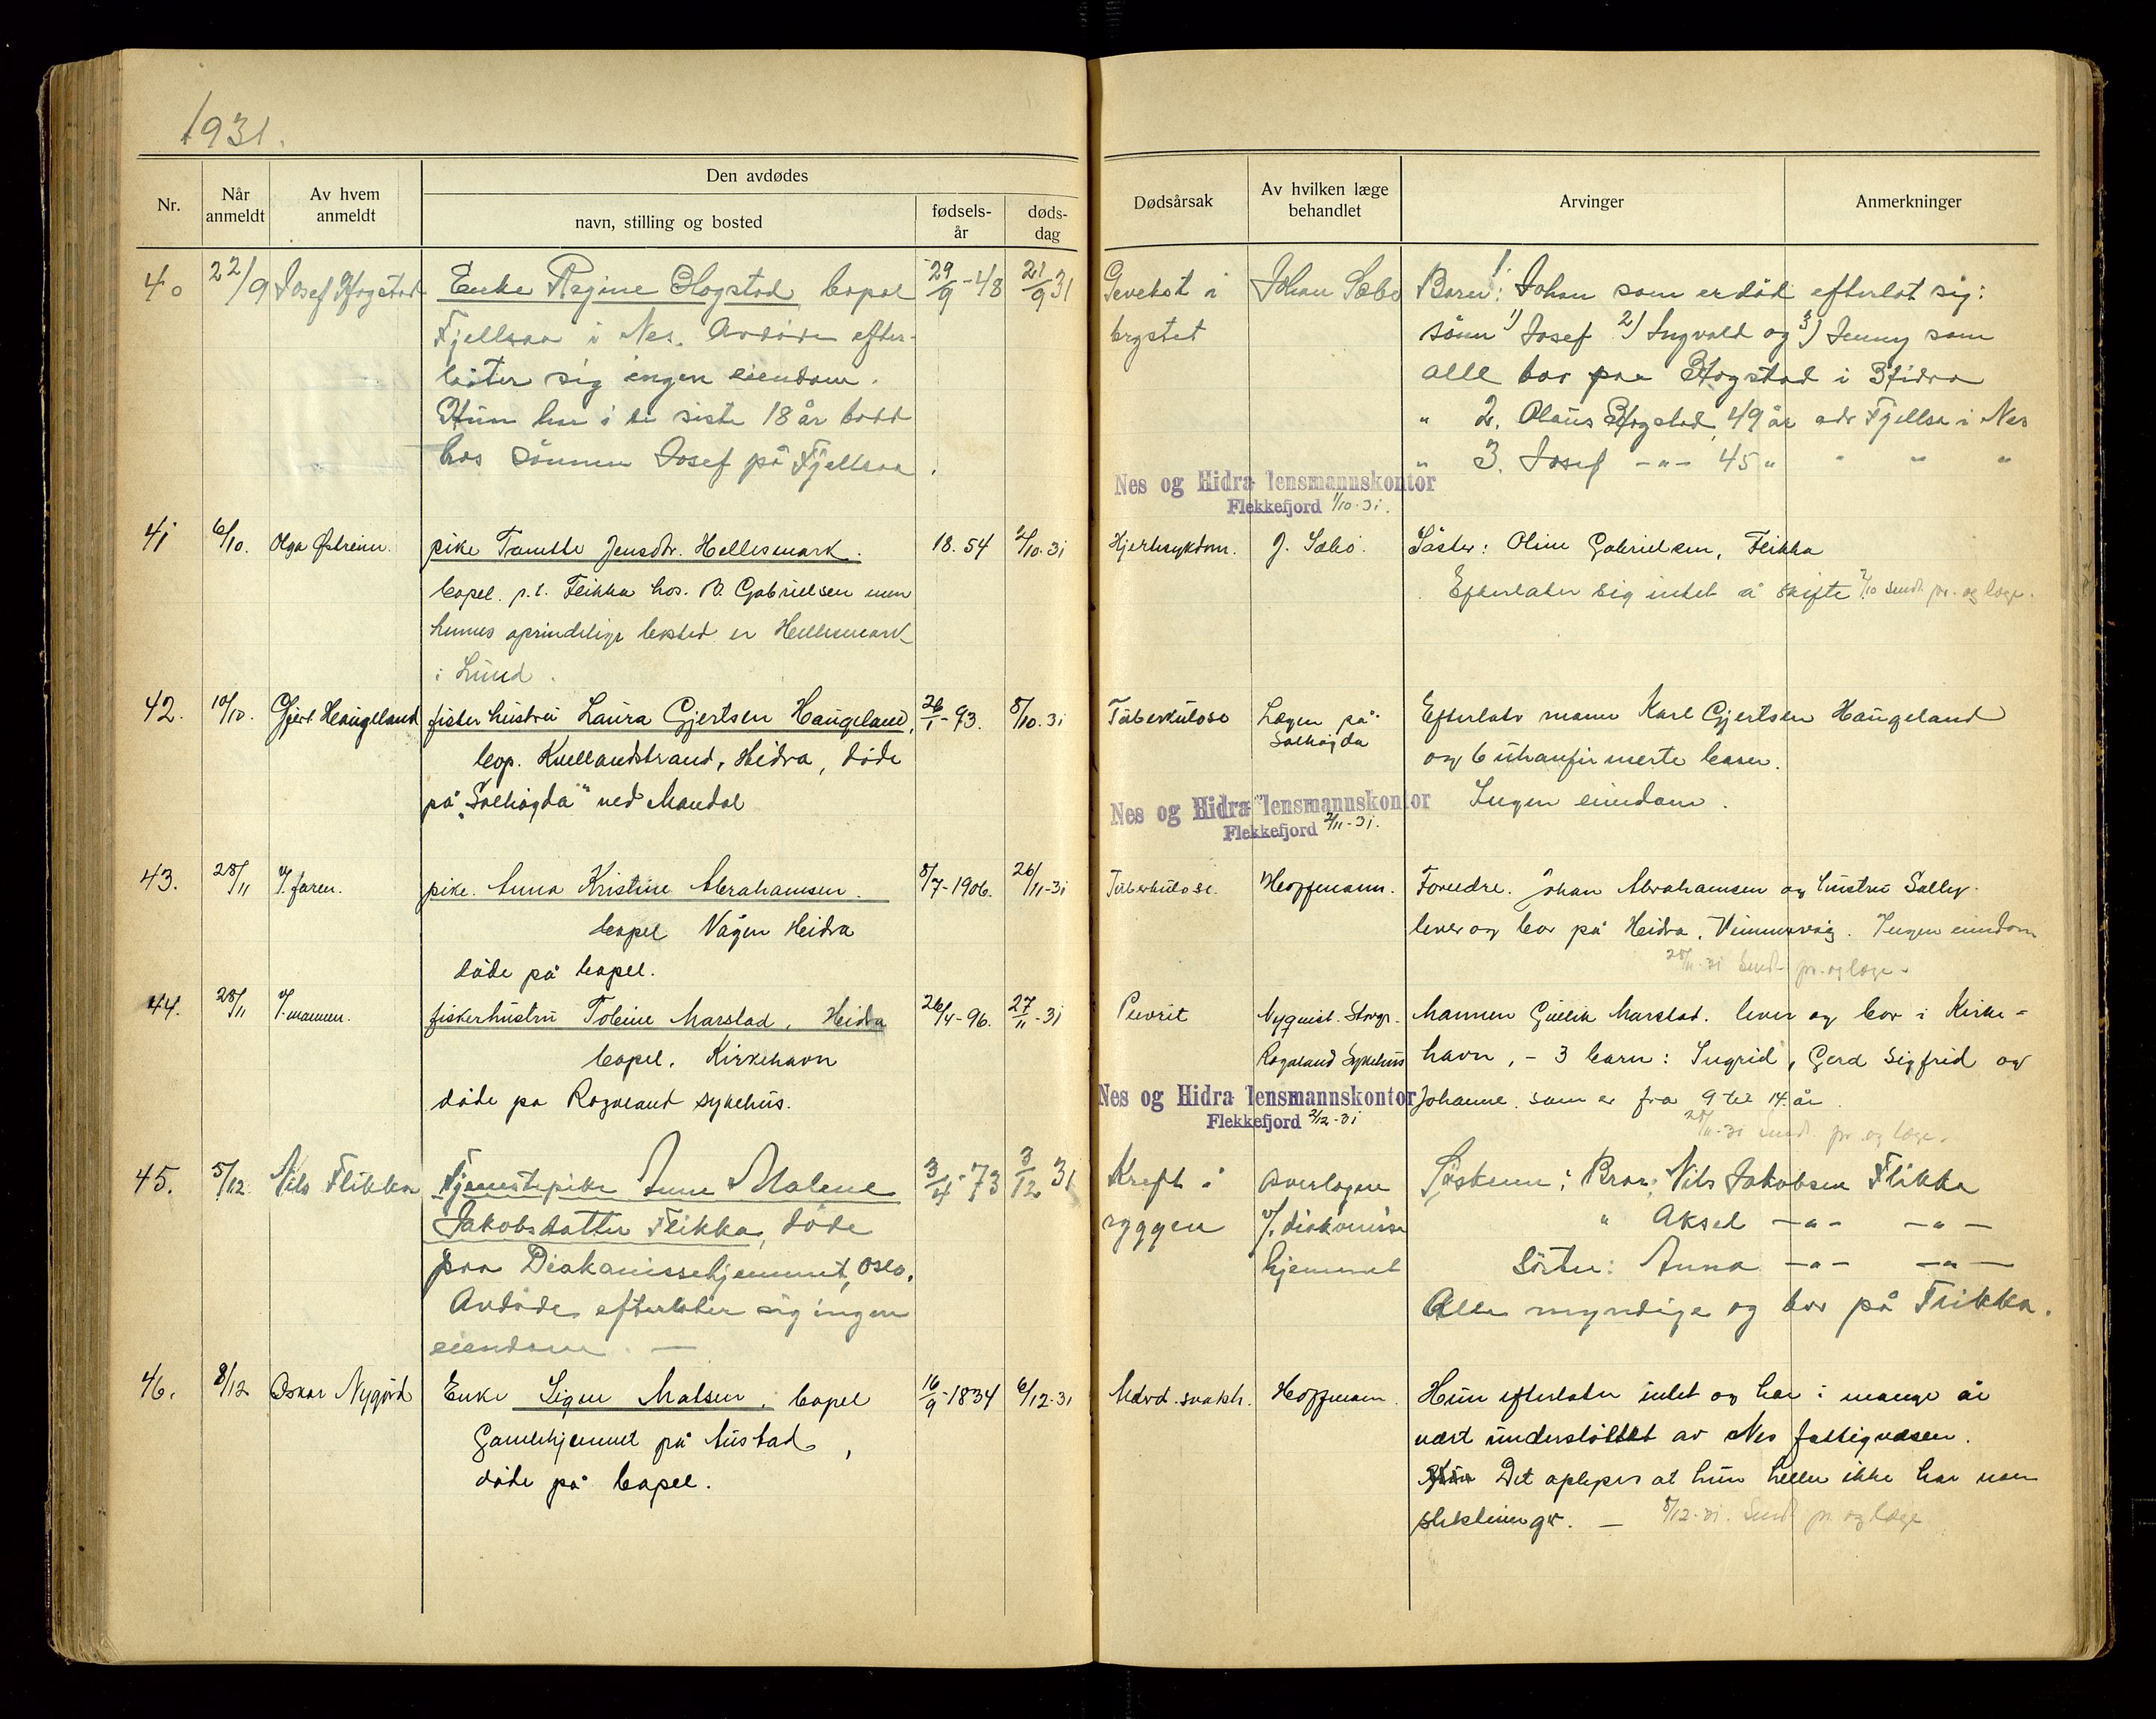 1931.
Nr.
Når anmeldt
Av hvem anmeldt
Den avdødes
navn, stilling og bosted
fødselsår
dødsdag
Dødsårsak
Av hvilken læge behandlet
Arvinger
Anmerkninger
40 22/9 Josef Hogstad Enke Regine Hogstad bopæl 29/9-48 21/9 31 Gevekst i Johan Sæbø Barn: 1. Johan som er död efterlot sig:
Fjellsaa i Nes. Avdöde efter- brystet sönn 1) Josef 2) Ingvald og 3) Jenny som
låter sig ingen eiendom. alle bor paa Hogstad i Hidra
Hun har i de siste 18 år bodd " 2. Olaus Hogstad 49 år adr Fjellsa i Nes
hos sönnen Josef på Fjellsaa. " 3. Josef -"- 45 " " " "
Nes og Hidra lensmannskontor
Flekkefjord 1/10-31.
41 6/10. Olga Østreim. pike Tamette Jensdtr. Hellesmark. 18.54 2/10.31 Hjertesykdom. J. Sæbö. Söster: Oline Gabrielsen, Flikka
bopel. p.t. Flikka hos. O. Gabrielsen men Efterlater sig intet å skifte 7/10 sendt pr. og læge.
hennes oprindelige bosted er Hellesmark
i Lund.
42. 10/10. Gjert Haugeland fisker hustru Laura Gjertsen Haugeland, 26/1-93. 8/10.31 Tuberkulose Lægen på Solhögda Efterlatr mann Karl Gjertsen Haugeland
bop. Kvellandstrand, Hidra, döde og 6 ukonfirmerte barn.
på "Solhögda" ved Mandal Ingen eiendom.
Nes og Hidra lensmannskontor
Flekkefjord 2/11-31.
43. 28/11 v/ faren. pike. Anna Kristine Abrahamsen. 8/7-1906. 26/11-31 Tuberkulose. Hoffmann. Foreldre. Johan Abrahamsen og hustru Sally.
bopel Vågen Heidra lever og bor på Heidra. Ingen eiendom
döde på bopel. 28/11-31 Sendt pr. og læge.
44. 28/11 v/ mannen. fiskerhustru Tobine Marstad, Heidra 26/4-96. 27/11-31 Pevrit Nyquist. Mannen Gullik Marstad. lever og bor i Kirke-
bopel. Kirkehavn Rogaland Sykehus havn, - 3 barn: Ingrid, Gerd Sigfrid og
döde på Rogaland sykehus. Johanne. som er fra 9 til 14 år.
Nes og Hidra lensmannskontor
Flekkefjord 2/12-31
28/11-31 sendt pr. og læge.
45. 5/12 Nils Flikka Tjenestepike Anne Malene 3/4-73 3/12 31 Kreft i overlægen Søsken: Bror: Nils Jakobsen Flikka
Jakobsdatter Flikka, döde ryggen v/. diakonisse " Aksel -"- -"-
paa Diakonissehjemmet, Oslo. hjemmet Söster: Anna -"- -"-
Avdöde efterlater sig ingen Alle myndige og bor på Flikka.
eiendom. —
46. 8/12 Oskar Nygård Enke Signe Matsen. bopel 16/9-1834 6/12-31 Hoffmann. Hun efterlater intet og har i mange år
Gamlehjemmet på Austad, vært understöttet av Nes fattigvæsen.
döde på bopel. Det oplyses at hun heller ikke har noen
slektninger. — 8/12-31. Sendt pr. og læge